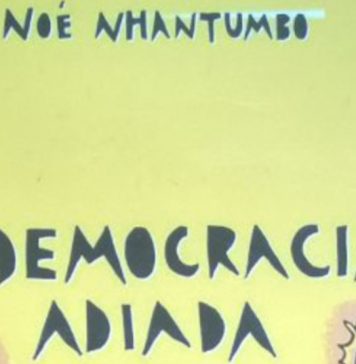 NOÉ NHANTUMBO
DEMOCRACIA
ADIADA